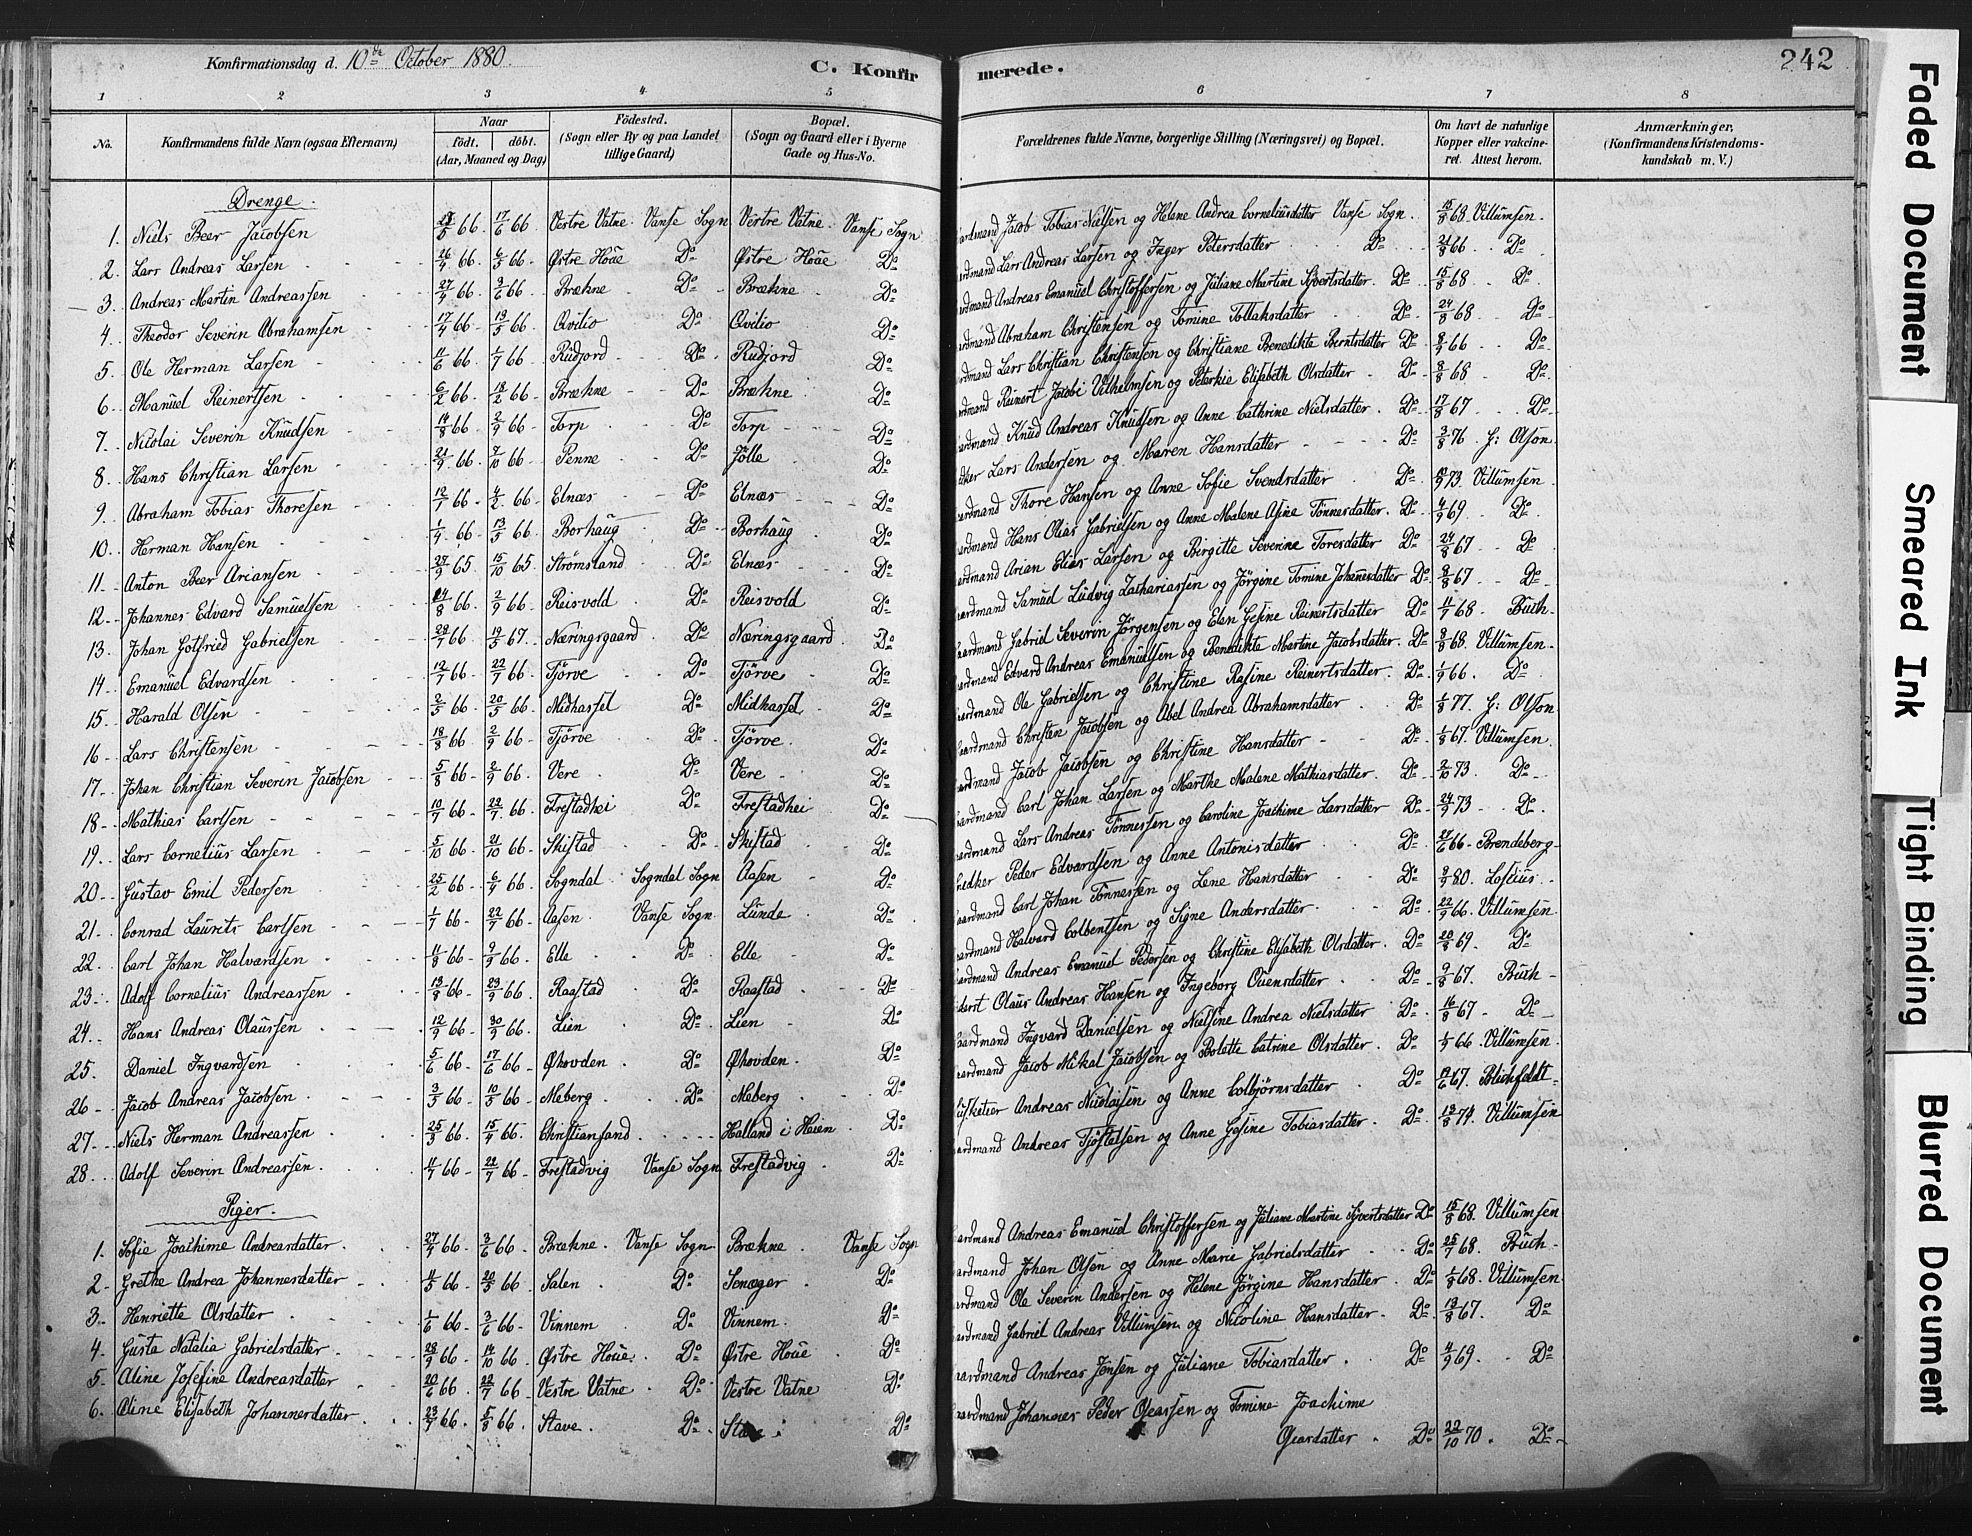 Konfirmationsdag d. 10de October 1880.
C. Konfirmerede.
242
1 2 3 4 5 6 7 8
No. Konfirmandens fulde Navn (ogsaa Efternavn) Naar Födt. döbt. (Aar, Maaned og Dag) Födested. (Sogn eller By og paa Landet tillige Gaard) Bopæl. (Sogn og Gaard eller i Byerne Gade og Hus-No. Forældrenes fulde Navne, borgerlige Stilling (Næringsvei) og Bopæl. Om havt de naturlige Kopper eller vakcineret. Attest herom. Anmærkninger. (Konfirmandens Kristendomskundskab m. V.)
Drenge.
1. Niels Beer Jacobsen 66. 17/6 66 Vestre Vatne. Vanse Sogn Vestre Vatne. Vanse Sogn Jacob Tobias Nielsen og Helene Andrea Corneliusdatter Vanse Sogn. 15/8 68. Villumsen.
2. Lars Andreas Larsen 26/4 66. 6/5 66. Østre Höüe Do Østre Höüe Do Lars Andreas Larsen og Inger Petersdatter Do 21/8 66 Do
3. Andreas Martin Andreassen 27/4 66. 3/6 66. Brækne Do Brækne Do Andreas Emanuel Christoffersen og Juliane Martine Sjvertsdatter. Do 15/8 68 Do
4. Theodor Severin Abrahamsen 17/4 66 13/5 66. Qvilio Do Qvilio Do Abraham Christensen og Tomine Tollaksdatter Do 24/8 68 Do
5. Ole Herman Larsen 11/6 66. 1/7 66. Rudjord Do Rudjord Do Lars Christian Christensen og Christiane Benedikte Berntsdatter Do 8/9 66 Do
6. Manuel Reinertsen 6/2 66. 18/2 66. Brækne Do Brækne Do Reinert Jacobi Vilhelmsen og Peterkie Elisabeth Olsdatter Do 8/8 68. Do
7. Nicolai Severin Knudsen 14/8 66 2/9 66 Torp Do Torp Do Knud Andreas Knudsen og Anne Cathrine Nielsdatter. Do 17/8 67 Do
8. Hans Christian Larsen 21/9 66. 7/10 66. Penne Do Jölle Do Lars Andersen og Maren Hansdatter Do 3/8 76. H: Olson
9. Abraham Tobias Thoresen 12/7 66 4/2 66 Elnæs Do Elnæs Do Thore Hansen og Anne Sofie Svendsdatter Do 73. Villumsen
10. Herman Hansen 1/4 66 13/5 66. Borhaug Do Borhaug Do Hans Olias Gabrielsen og Anne Malene Asine Tönnesdatter. Do 4/9 69 Do
11. Anton Beer Ariansen 27/9 65 15/10 65 Strömsland Do Elnæs Do Arian Elias Larsen og Birgitte Severine Toresdatter Do 24/8 67 Do
12. Johannes Edvard Samuelsen 14/8 66. 2/9 66. Reisvold Do Reisvold Do Samuel Ludvig Zachariassen og Jörgine Tomine Johannesdatter Do 8/8 67 Do
13. Johan Gotfried Gabrielsen 29/7 66 19/5 67. Næringsgaard Do Næringsgaard Do Gabriel Severin Jörgensen og Elen Gesine Reinertsdatter Do 11/7 68. Buch
14. Emanuel Edvardsen 12/7 66 22/7 66. Tjörve Do Tjörve Do Edvard Andreas Emanuelsen og Benedikte Martine Jacobsdatter. Do 8/8 68. Villumsen
15. Harald Olsen 2/5 66 20/5 66 Midhassel Do Midhassel Do Ole Gabrielsen og Christine Rasine Reinertsdatter. Do 1/9 66. Do
16. Lars Christensen 18/8 66 2/9 66 Tjörve Do Tjörve Do Christen Jacobsen og Abel Andrea Abrahamsdatter Do 1/8 77. H: Olson
17. Johan Christian Severin Jacobsen 5/8 66 2/9 66. Vere Do Vere Do Jacob Jacobsen og Christine Hansdatter Do 1/8 67. Villumsen.
18. Mathias Carlsen 10/7 66 22/7 66. Frestadhei Do Frestadhei Do Carl Johan Larsen og Marthe Malene Mathiasdatter. Do 2/10 73. Do
19. Lars Cornelius Larsen 5/10 66 21/10 66. Skistad Do Skistad Do Lars Andreas Tönnessen og Caroline Joachime Larsdatter Do 24/9 73 Do
20. Gustav Emil Pedersen 25/2 66 6/4 66. Sogndal Sogndal Sogn Aasen Do Peder Edvardsen og Anne Antonisdatter Do 27/6 66. Brendeberg
21. Conrad Laurits Carlsen 1/7 66 22/7 66. Aasen. Vanse Sogn. Lunde Do Carl Johan Tönnessen og Lene Hansdatter Do 9/9 80. Losius
22. Carl Johan Halvardsen 11/8 66 9/9 66. Elle Do Elle Do Halvard Colbentsen og Signe Andersdatter Do 22/9 66. Villumsen
23. Adolf Cornelius Andreassen 13/8 66. 23/9 66. Raastad Do Raastad Do Andreas Emanuel Pedersen og Christine Elisabeth Olsdatter. Do 20/8 69. Do
24. Hans Andreas Olaussen 12/9 66 30/9 66. Lien Do Lien Do Olaus Andreas Hansen og Ingeborg Ouensdatter Do 9/8 67. Buch
25. Daniel Ingvardsen 5/6 66. 17/6 66. Øhovden Do Øhovden Do Ingvard Danielsen og Nielsine Andrea Nielsdatter Do 16/8 67 Do
26. Jacob Andreas Jacobsen 3/5 66 10/5 66. Meberg Do Meberg Do Jacob Mikal Jacobsen og Bolette Catrine Olsdatter. Do 66. Villumsen
27. Niels Herman Andreassen 25/3 66. 15/4 66. Christiansand Halland i Heien Do Andreas Nicolaisen og Anne Colbjørnsdatter Do 67. Blichfeldt
28. Adolf Severin Andreassen 11/7 66 22/7 66. Frestadvig Vanse Sogn Frestadvig Do Andreas Tjöstelsen og Anne Gesine Tobiasdatter. Do 13/8 74. Villumsen
Piger.
1. Sofie Joachime Andreasdatter 27/4 66. 3/6 66. Brækne. Vanse Sogn Brækne Vanse Sogn Andreas Emanuel Christoffersen og Juliane Martine Sjvertsdatter Do 15/8 68. Villumsen
2. Grethe Andrea Johannesdatter 11/5 66. 20/5 66 Salen Do Senæger Do Johan Olsen og Anne Marie Gabrielsdatter Do 25/7 68. Buch
3. Henriette Olsdatter 1/6 66 3/6 66 Vinnem Do Vinnem Do Ole Severin Andersen og Helene Jörgine Hansdatter Do 1/8 68. Villumsen
4. Gusta Natalia Gabrielsdatter 28/9 66 14/10 66. Østre Höüe Do Østre Höüe Do Gabriel Andreas Villumsen og Nicoline Hansdatter Do 13/8 67. Do
5. Aline Josefine Andreasdatter 20/6 66 22/7 66 Vestre Vatne Do Vestre Vatne Do Andreas Jensen og Juliane Tobiasdatter Do 4/9 69. Do
6. Aline Elisabeth Johannesdatter 23/7 66. 5/8 66. Stave Do Stave Do Johannes Peder Geassen og Tomine Joachime
Geasdatter Do 22/10 70. Do
Faded Document
Smeared Ink
Tight Binding
Blurred Document